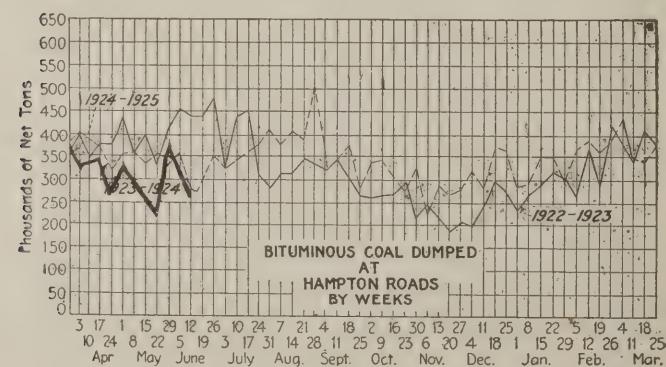 650
600
550
500
450
400
350
300
250
200
150
100
50
0
Thousands of Net Tons
1924-1925
1923-1924
1922-1923
BITUMINOUS COAL DUMPED
AT
HAMPTON ROADS
BY WEEKS
3 17 1 15 29 12 26 10 24 7 21 4 18 2 16 30 13 27 11 25 8 22 5 19 4 18
10 24 8 22 5 19 3 17 31 14 28 11 25 9 23 6 20 4 18 1 15 29 12 26 11 25
Apr May June July Aug. Sept. Oct. Nov. Dec. Jan. Feb. Mar.